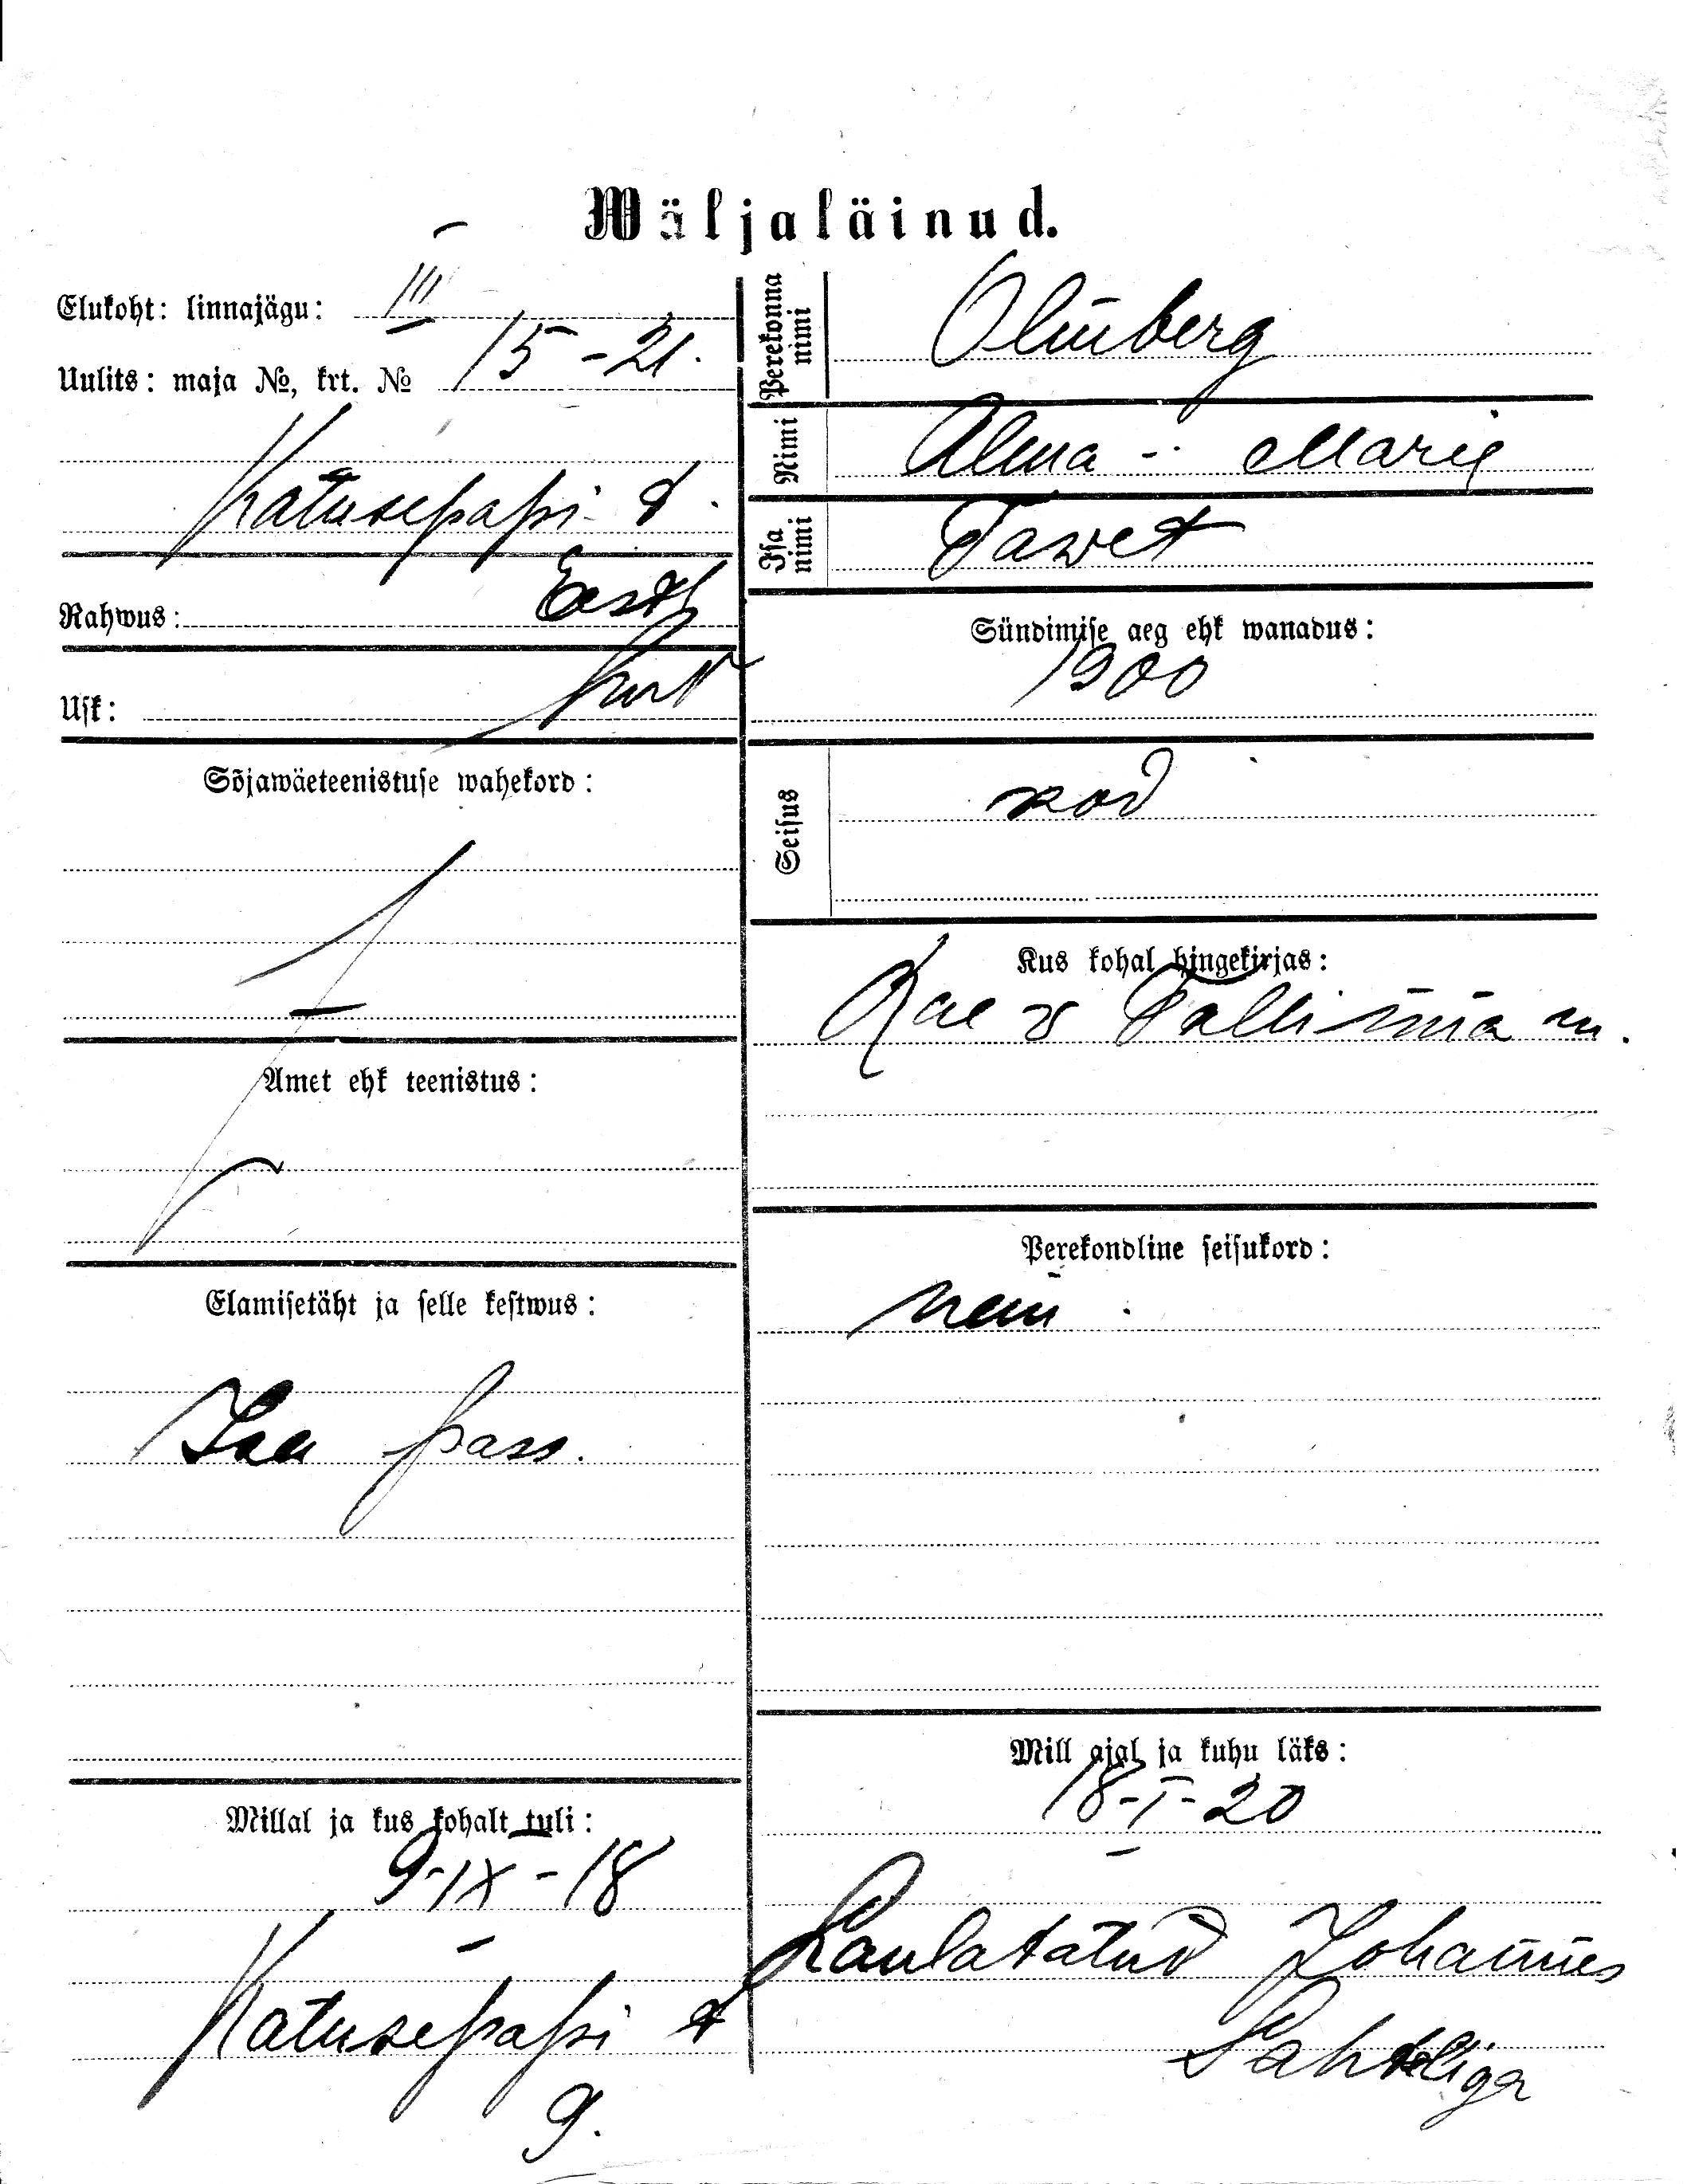 Wäljaläinud.
Elukoht: linnajägu: III
Uulits: maja №, krt. № 15-21.
Katusepapi t.
Rahwus: Eesti
Usk: lut
Sõjawäeteenistuse wahekord:
Amet ehk teenistus:
Elamisetäht ja selle kestwus:
Isa pass.
Millal ja kus kohalt tuli:
9-IX-18
Katusepapi t
9.
Perekonna nimi
Nimi Alma - Marie
Isa nimi Tawet
Sündimise aeg ehk wanadus:
1900
Seisus
Kus kohal hingekirjas:
Rae v Tallinna m.
Perekondline seisukord:
Mill ajal ja kuhu läks:
18-I-20
Laulatatud Johannes